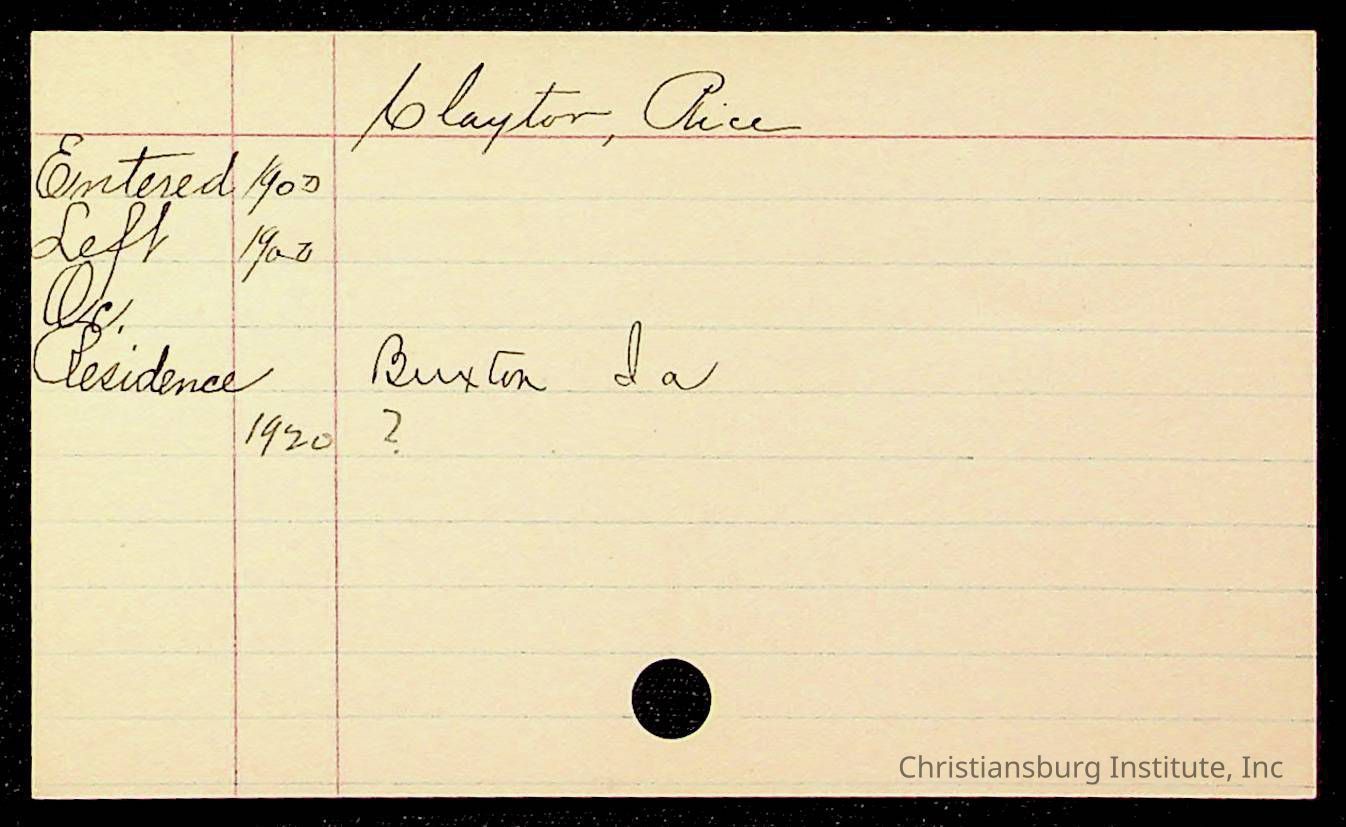 Clayton, Rice
Entered 1900
Left 1900
Oc.
Residence Buxton Ia
1920 ?
Christiansburg Institute, Inc